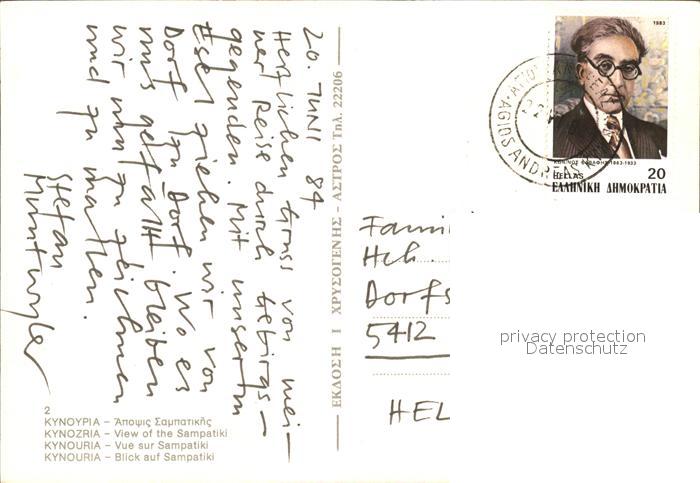 20. JUNI 84
Herzlichen Gruss von mei-
ner Reise durch Gebirgs-
gegenden. Mit unserem
Esel ziehen wir von
Dorf zu Dorf. Wo es
uns gefällt bleiben
wir um zu zeichnen
und zu malen.
Stefan
Muntwyler
ΕΚΔΟΣΗ Ι ΧΡΥΣΟΓΕΝΗΣ – ΑΣΤΡΟΣ Τηλ. 22206
2
ΚΥΝΟΥΡΙΑ – Άποψις Σαμπατικής
KYNOZRIA – View of the Sampatiki
KYNOURIA – Vue sur Sampatiki
KYNOURIA – Blick auf Sampatiki
1983
AGIOS ANDREAS
1863-1933
HELLAS
20
ΕΛΛΗΝΙΚΗ ΔΗΜΟΚΡΑΤΙΑ
Fami
Hch.
Dorfs
5412
HEL
privacy protection
Datenschutz